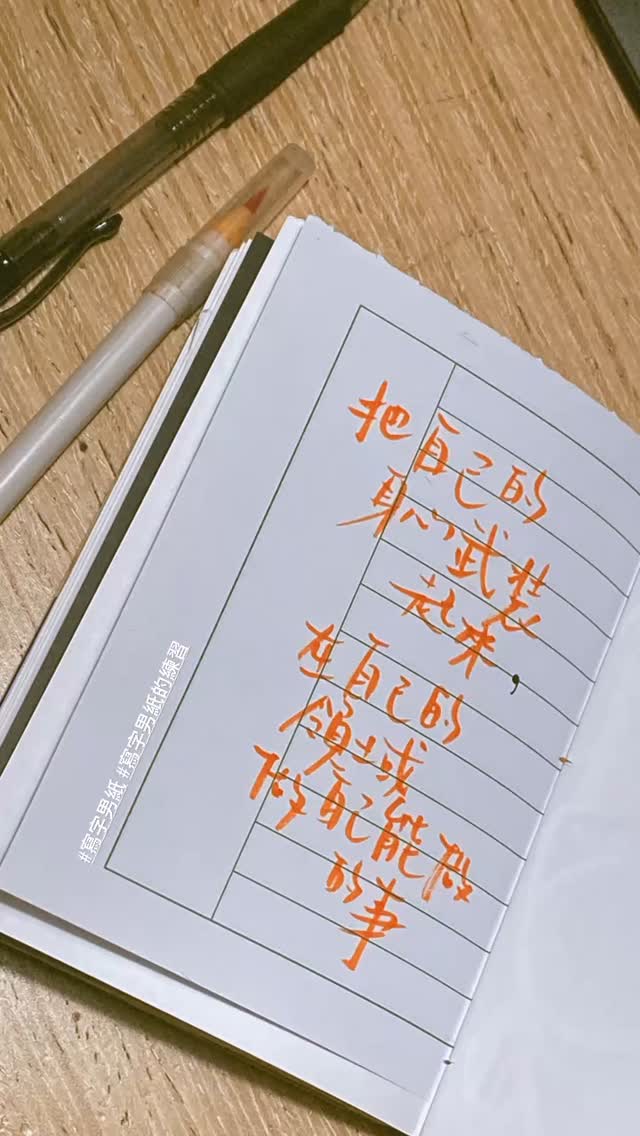 把自己的
身心武裝
起來，
在自己的
領域
做自己能做
的事
#寫字男紙 #寫字男紙的練習